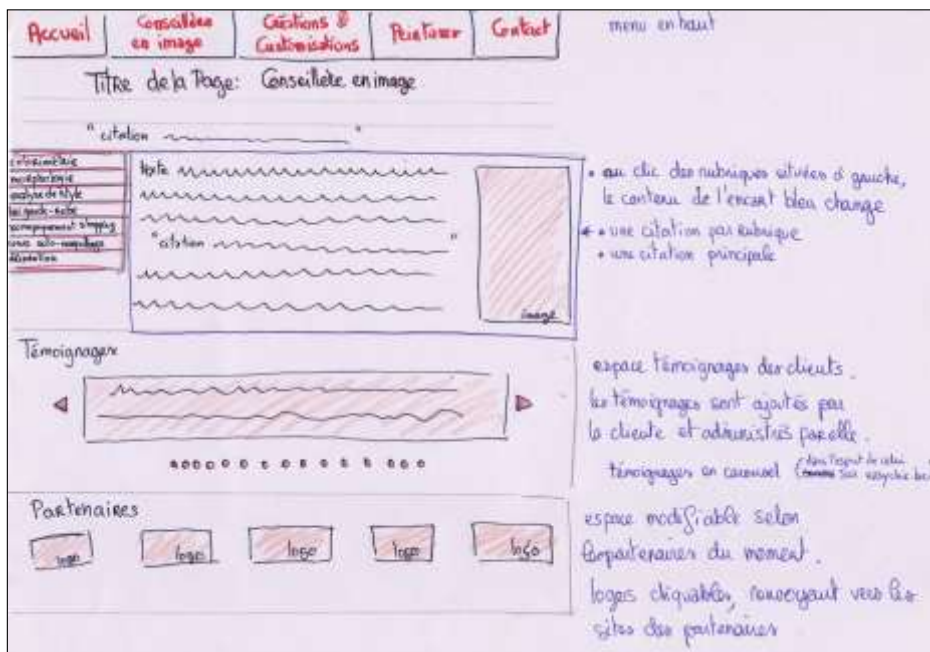 Accueil
Conseillère
en image
Créations &
Customisations
Peintures
Contact
menu en haut
Titre de la Page: Conseillère en image
"citation "
colorimétrie
morphologie
analyse de style
garde-robe
shopping
auto-maquillage
texte
"citation "
image
• au clic des rubriques situées à gauche,
le contenu de l'encart bleu change
← • une citation par rubrique
• une citation principale
Témoignages
espace témoignages des clients.
les témoignages sont ajoutés par
la cliente et administrés par elle.
témoignages en carousel (dans l'esprit de celui
sur
Partenaires
logo
logo
logo
logo
logo
espace modifiable selon
les partenaires du moment.
logos cliquables, renvoyant vers les
sites des partenaires